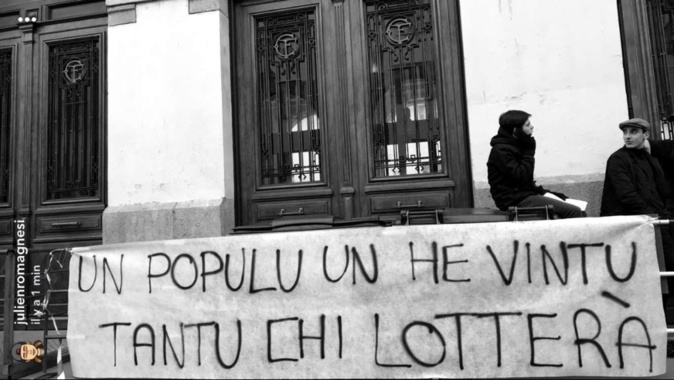 julienromagnesi
il y a 1 min
UN POPULU UN HE VINTU
TANTU CHI LOTTERÀ